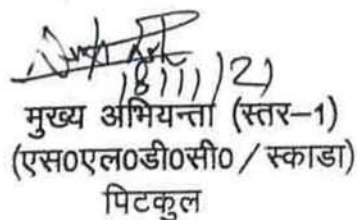 18/11/21
मुख्य अभियन्ता (स्तर–1)
(एस0एल0डी0सी0 / स्काडा)
पिटकुल